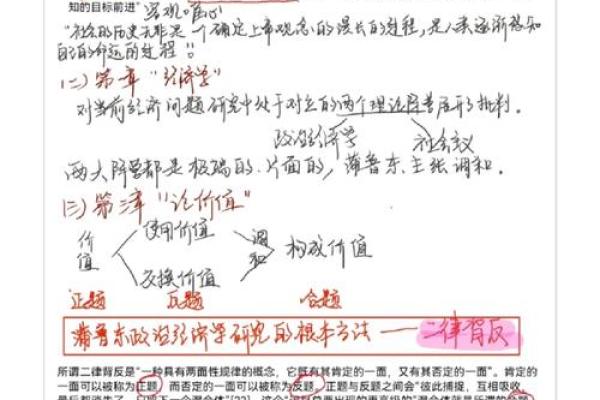 知的目标前进” 客观唯心
“社会的历史无非是一个确定上帝观念的漫长的过程，是人类逐渐感知
自己的命运的过程”。
(二) 第一章 “经济学”
对当前经济问题研究中处于对立的两个理论阵营展开批判.
政治经济学 社会主义
两大阵营都是极端的、片面的，蒲鲁东主张调和.
(三) 第二章 “论价值”
价值 使用价值 交换价值 调和 构成价值
正题 反题 合题
蒲鲁东政治经济学研究的根本方法 —— 二律背反
所谓二律背反是“一种具有两面性规律的概念，它既有其肯定的一面，又有其否定的一面”。肯定的
一面可以被称为正题，而否定的一面可以被称为反题，正题与反题之间会“彼此捕捉，互相吸收，